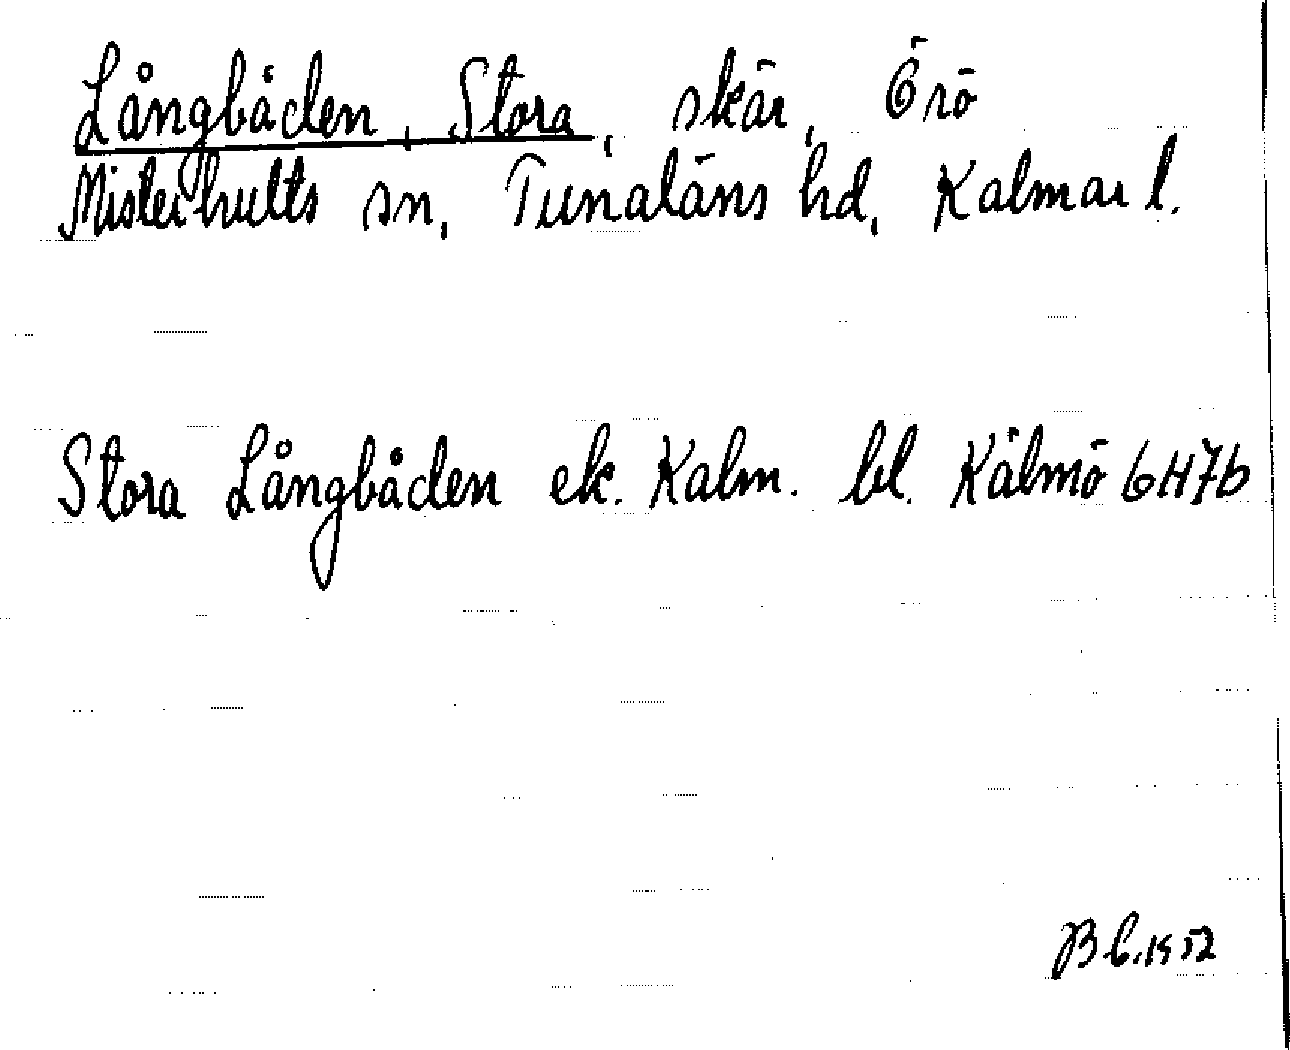 Långbåden, Stora, skär, Örö
Misterhults sn, Tunaläns hd, Kalmar l.
Stora Långbåden ek. Kalm. bl. Kälmö 6H7b
B C. 1952